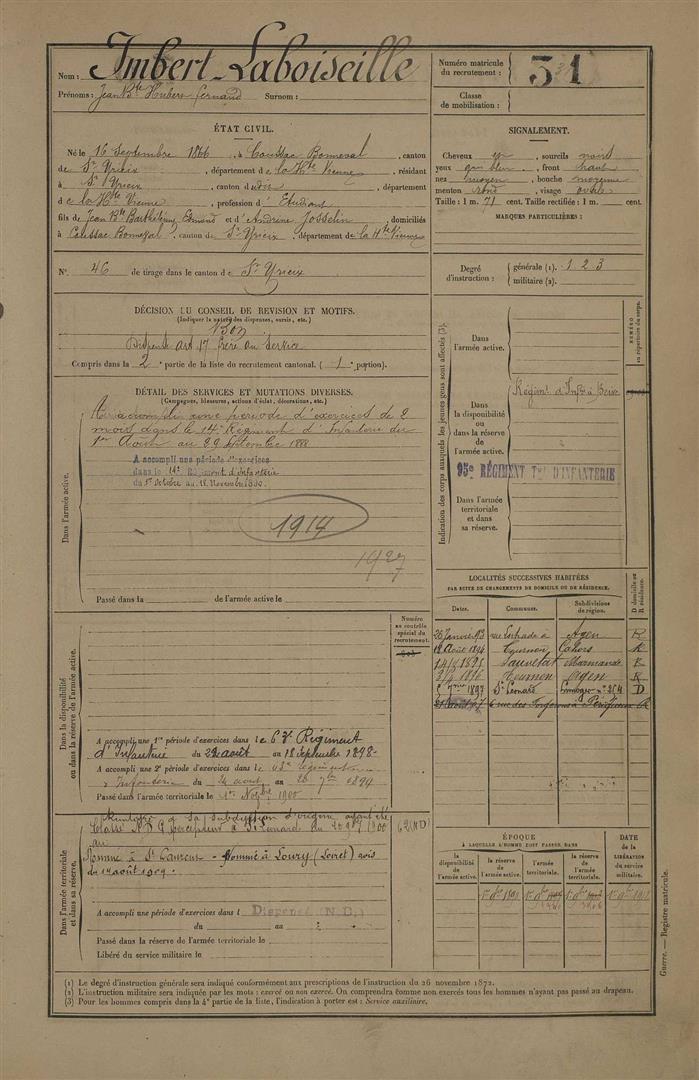 Nom : Imbert-Laboiseille
Prénoms : Jean Bte Hubert Fernand Surnom :
Numéro matricule du recrutement : 31
Classe de mobilisation :
ÉTAT CIVIL.
Né le 16 Septembre 1866, à Coussac Bonneval, canton
de St Yrieix, département de la Hte Vienne, résidant
à St Yrieix, canton dudit, département
de la Hte Vienne, profession d'Etudiant
fils de Jean Bte Barthélémy Edmond et d'Andrine Josselin, domiciliés
à Coussac Bonneval, canton de St Yrieix, département de la Hte Vienne
N° 46 de tirage dans le canton de St Yrieix
SIGNALEMENT.
Cheveux , sourcils noirs
yeux gris bleu, front haut
nez moyen, bouche moyenne
menton rond, visage ovale
Taille : 1 m. 71 cent. Taille rectifiée : 1 m. cent.
MARQUES PARTICULIÈRES :
Degré d'instruction : générale (1). 1 2 3
militaire (2).
DÉCISION DU CONSEIL DE REVISION ET MOTIFS.
(Indiquer la nature des dispenses, sursis, etc.)
Bon
Dispensé art 17 frère au Service
Compris dans la 2e partie de la liste du recrutement cantonal. (1e portion).
DÉTAIL DES SERVICES ET MUTATIONS DIVERSES.
(Campagnes, blessures, actions d'éclat, décorations, etc.)
Dans l'armée active.
A accompli une période d'exercices de 2
mois dans le 14e Régiment d'Infanterie du
1er Août au 29 Septembre 1888
A accompli une période d'exercices
dans le 14e Régiment d'Infanterie
du 1er Octobre au 18 Novembre 1890.
1914
1927
Passé dans la de l'armée active le
Indication des corps auxquels les jeunes gens sont affectés (3).
NUMÉRO au répertoire du corps.
Dans l'armée active.
Dans la disponibilité ou dans la réserve de l'armée active.
Régiment d'Infie à
Dans l'armée territoriale et dans sa réserve.
95e RÉGIMENT Tal D'INFANTERIE
LOCALITÉS SUCCESSIVES HABITÉES
PAR SUITE DE CHANGEMENTS DE DOMICILE OU DE RÉSIDENCE.
Dates. Communes. Subdivisions de région. D domicile ou R résidence.
26 Janvier 93 rue à Agen R
Août 1894 Tournon Cahors R
1895 Sauvetat Marmande R
1896 Tournon Agen R
7bre 1897 St Léonard Limoges n° 254 D
à Périgueux R
Numéro au contrôle spécial du recrutement.
Dans la disponibilité ou dans la réserve de l'armée active.
A accompli une 1re période d'exercices dans le 63e Régiment
d'Infanterie du 22 août au 18 septembre 1898
A accompli une 2e période d'exercices dans le 63e régiment
d'Infanterie du 24 août au 20 7bre 1894
Passé dans l'armée territoriale le 1er Novbre 1900
Dans l'armée territoriale et dans sa réserve.
Maintenu à sa subdivision d'origine ayant été
classé N.D. percepteur à St Léonard 1900
au
Nommé à St Laurent - Nommé à Loury (Loiret) avis
du 14 août 1909
A accompli une période d'exercices dans l Dispensé (N.D.)
du au
Passé dans la réserve de l'armée territoriale le
Libéré du service militaire le
ÉPOQUE
À LAQUELLE L'HOMME DOIT PASSER DANS
la disponibilité de l'armée active.
la réserve de l'armée active.
l'armée territoriale.
la réserve de l'armée territoriale.
DATE de la LIBÉRATION du service militaire.
(1) Le degré d'instruction générale sera indiqué conformément aux prescriptions de l'instruction du 26 novembre 1872.
(2) L'instruction militaire sera indiquée par les mots : exercé ou non exercé. On comprendra comme non exercés tous les hommes n'ayant pas passé au drapeau.
(3) Pour les hommes compris dans la 4e partie de la liste, l'indication à porter est : Service auxiliaire.
Guerre. — Registre matricule.